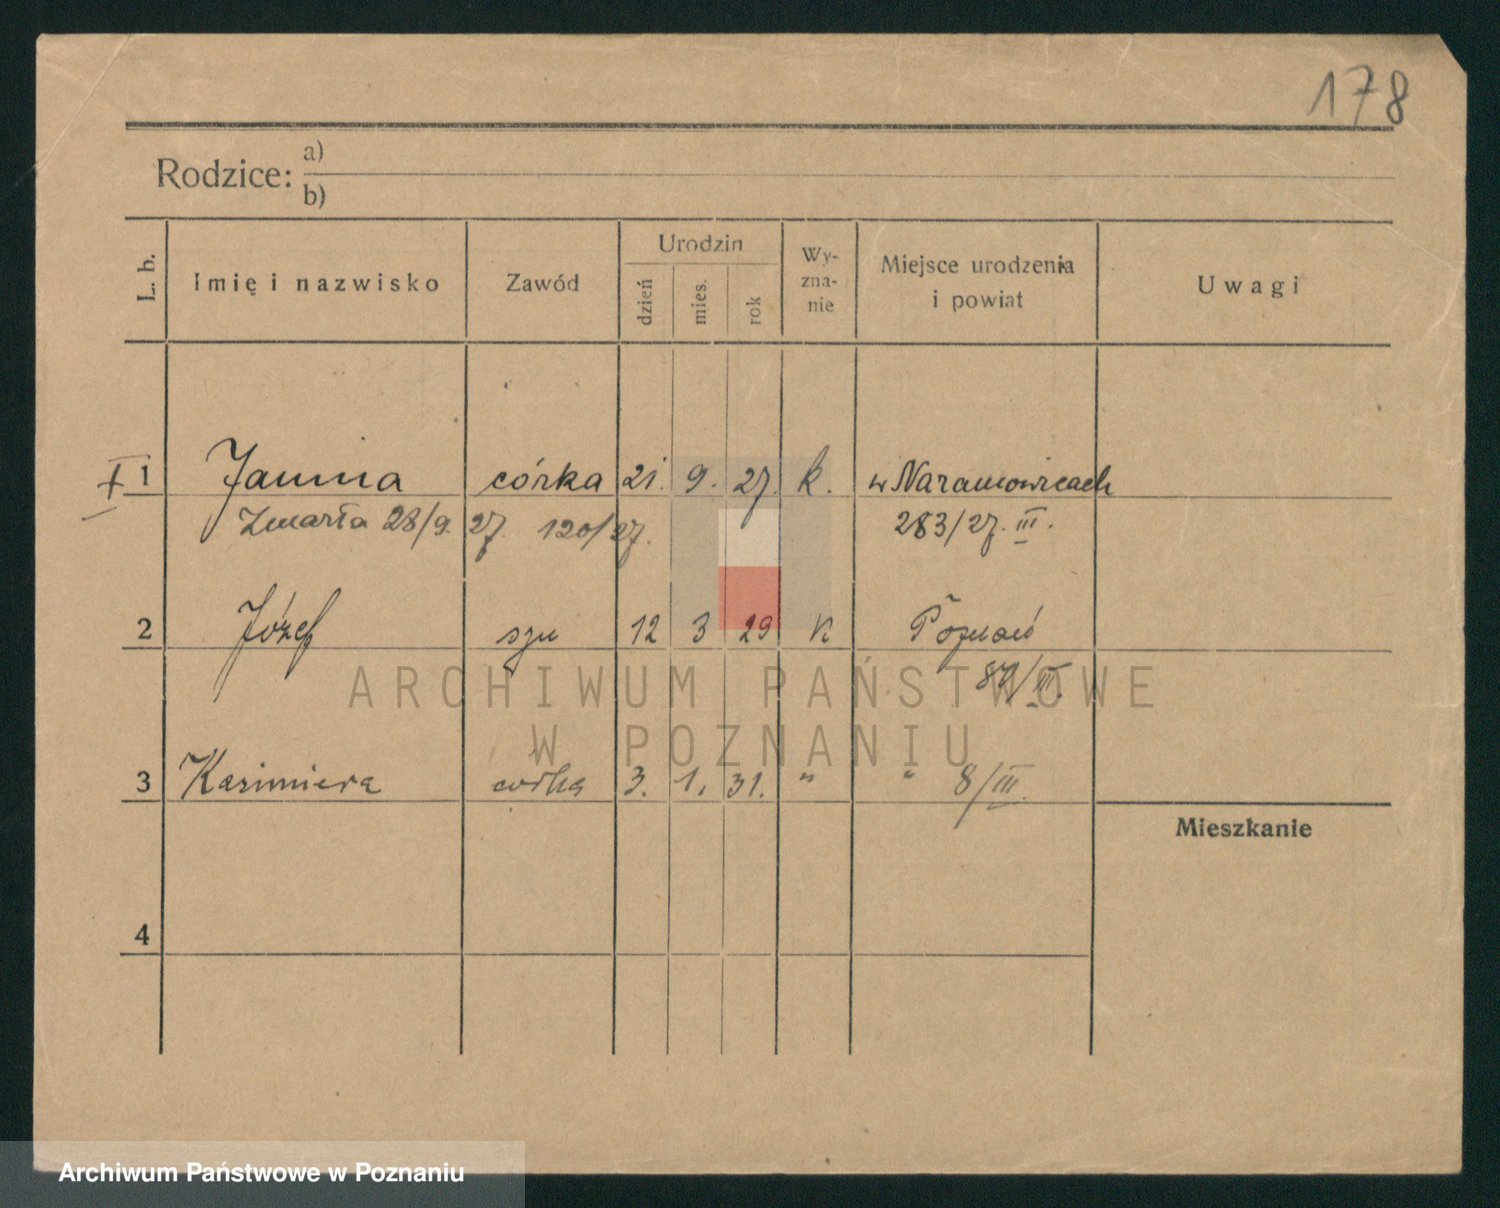 178
Rodzice: a)
b)
L. b. Imię i nazwisko Zawód Urodzin dzień mies. rok Wy-zna-nie Miejsce urodzenia i powiat Uwagi
1 Janina córka 21. 9. 27. k. w Naramowicach
Zmarła 28/9. 27. 120/27. 283/27. III.
2 Józef syn 12 3 29 K Poznań
87/III.
ARCHIWUM PAŃSTWOWE
W POZNANIU
3 Kazimiera córka 3. 1. 31. " " 8/III.
Mieszkanie
4
Archiwum Państwowe w Poznaniu